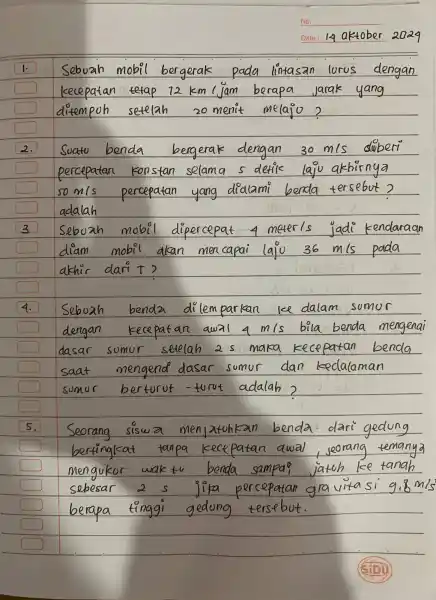 No:
Date: 14 Oktober 2024
1. Sebuah mobil bergerak pada lintasan lurus dengan
kecepatan tetap 72 km/jam berapa jarak yang
ditempuh setelah 20 menit melaju ?
2. Suatu benda bergerak dengan 30 m/s diberi
percepatan konstan selama 5 detik laju akhirnya
50 m/s percepatan yang dialami benda tersebut ?
adalah
3 Sebuah mobil dipercepat 4 meter/s jadi kendaraan
diam mobil akan mencapai laju 36 m/s pada
akhir dari T ?
4. Sebuah benda dilemparkan ke dalam sumur
dengan kecepatan awal 4 m/s bila benda mengenai
dasar sumur setelah 2 s maka kecepatan benda
saat mengenai dasar sumur dan kedalaman
sumur berturut - turut adalah ?
5. Seorang siswa menjatuhkan benda dari gedung
bertingkat tanpa kecepatan awal, seorang temanya
mengukur waktu benda sampai jatuh ke tanah
sebesar 2 s jika percepatan gravitasi 9,8 m/s
berapa tinggi gedung tersebut.
SIDU